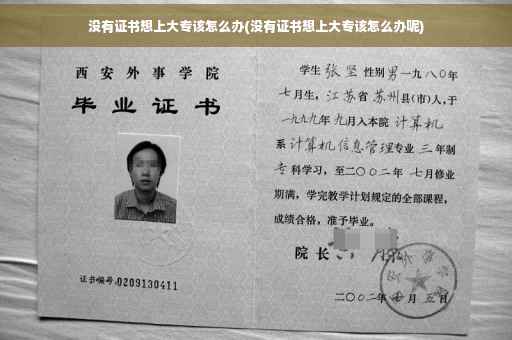 没有证书想上大专该怎么办(没有证书想上大专该怎么办呢)
西安外事学院
毕业证书
证书编号:0209130411
学生 张坚 性别 男 一九八0年
七月生, 江苏省 苏州县(市)人,于
一九九九年 九月入本院 计算机
系 计算机信息管理专业 三 年制
专科学习,至二〇〇二年 七月修业
期满,学完教学计划规定的全部课程,
成绩合格,准予毕业。
院 长
二〇〇二年 七 月 五 日